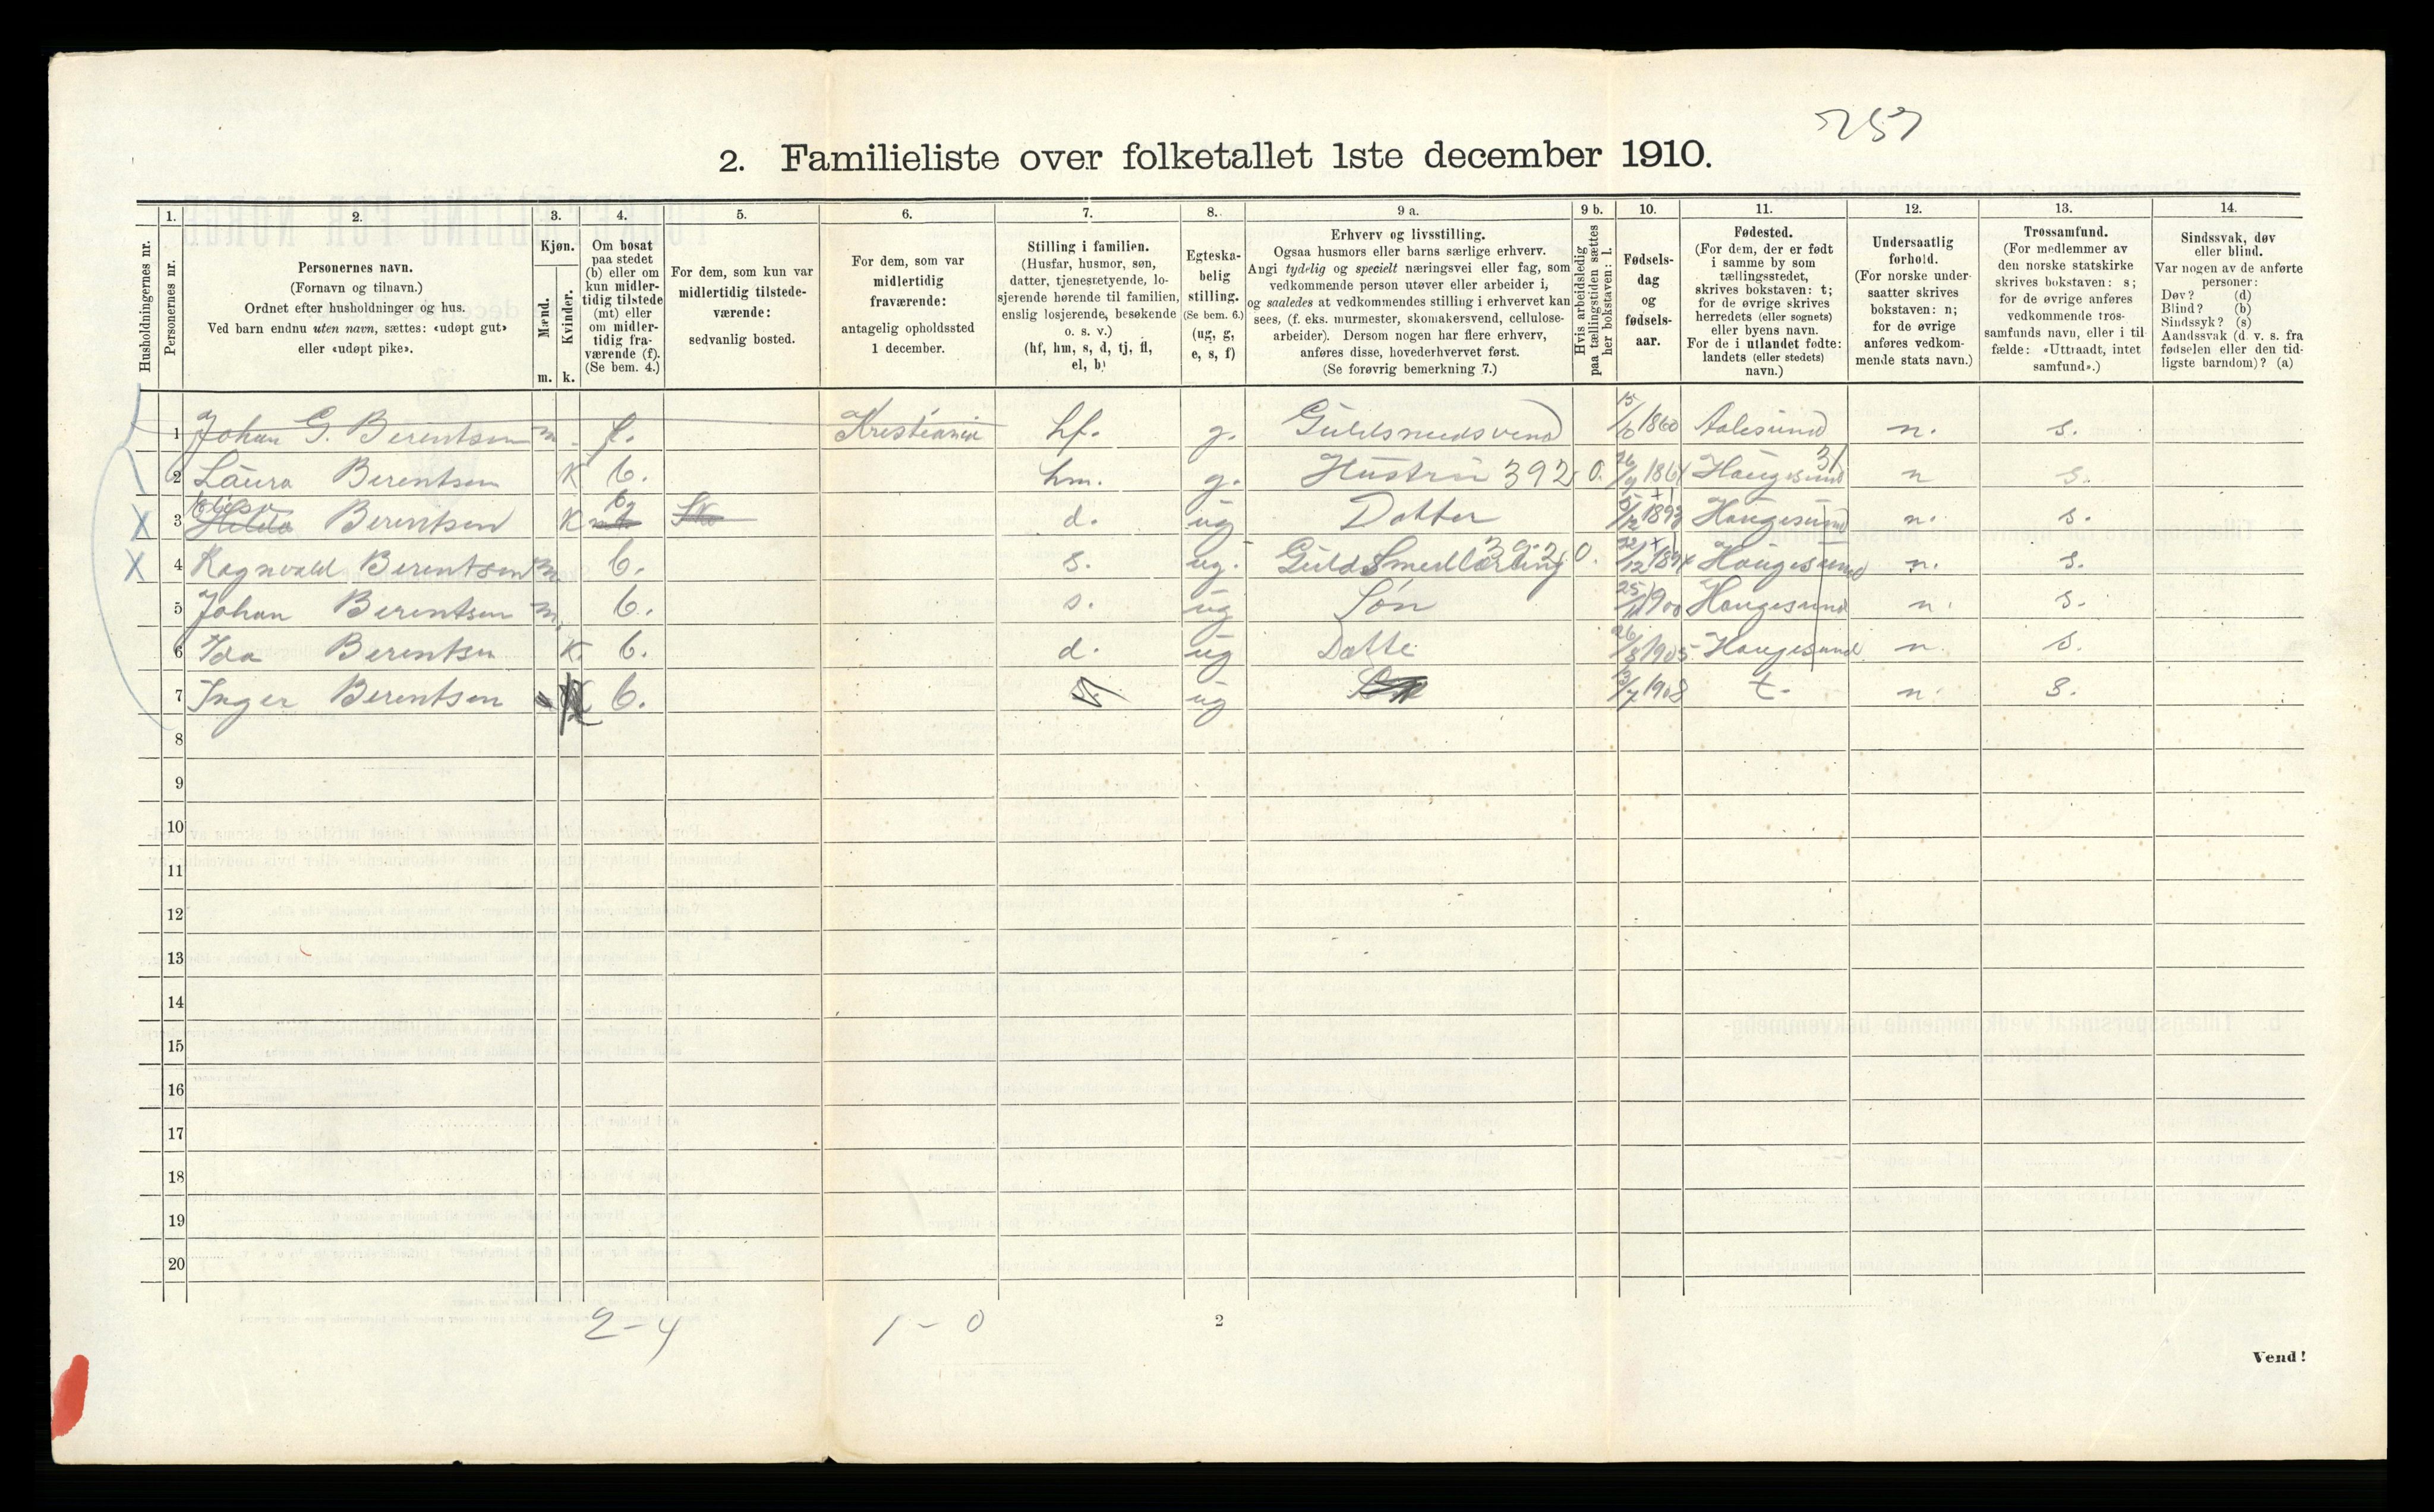 757
2. Familieliste over folketallet 1ste december 1910.
Husholdningernes nr.
1.
Personernes nr.
2.
Personernes navn.
(Fornavn og tilnavn.)
Ordnet efter husholdninger og hus.
Ved barn endnu uten navn, sættes: «udøpt gut»
eller «udøpt pike».
3.
Kjøn.
Mænd.
Kvinder.
m. k.
4.
Om bosat
paa stedet
(b) eller om
kun midler-
tidig tilstede
(mt) eller
om midler-
tidig fra-
værende (f).
(Se bem. 4.)
5.
For dem, som kun var
midlertidig tilstede-
værende:
sedvanlig bosted.
6.
For dem, som var
midlertidig
fraværende:
antagelig opholdssted
1 december.
7.
Stilling i familien.
(Husfar, husmor, søn,
datter, tjenestetyende, lo-
sjerende hørende til familien,
enslig losjerende, besøkende
o. s. v.)
(hf, hm, s, d, tj, fl,
el, b)
8.
Egteska-
belig
stilling.
(Se bem. 6.)
(ug, g,
e, s, f)
9 a.
Erhverv og livsstilling.
Ogsaa husmors eller barns særlige erhverv.
Angi tydelig og specielt næringsvei eller fag, som
vedkommende person utøver eller arbeider i,
og saaledes at vedkommendes stilling i erhvervet kan
sees, (f. eks. murmester, skomakersvend, cellulose-
arbeider). Dersom nogen har flere erhverv,
anføres disse, hovederhvervet først.
(Se forøvrig bemerkning 7.)
9 b.
Hvis arbeidsledig
paa tællingstiden sættes
her bokstaven: l.
10.
Fødsels-
dag
og
fødsels-
aar.
11.
Fødested.
(For dem, der er født
i samme by som
tællingsstedet,
skrives bokstaven: t;
for de øvrige skrives
herredets (eller sognets)
eller byens navn.
For de i utlandet fødte:
landets (eller stedets)
navn.)
12.
Undersaatlig
forhold.
(For norske under-
saatter skrives
bokstaven: n;
for de øvrige
anføres vedkom-
mende stats navn.)
13.
Trossamfund.
(For medlemmer av
den norske statskirke
skrives bokstaven: s;
for de øvrige anføres
vedkommende tros-
samfunds navn, eller i til-
fælde: «Uttraadt, intet
samfund».)
14.
Sindssvak, døv
eller blind.
Var nogen av de anførte
personer:
Døv? (d)
Blind? (b)
Sindssyk? (s)
Aandssvak (d. v. s. fra
fødselen eller den tid-
ligste barndom)? (a)
1 Johan G. Berentsen m f. Kristiania hf. g. Guldsmedsvend 1860 Aalesund n. s.
2 Laura Berentsen K b. hm. g. Hustru 392 0. Haugesund 31 n s.
3 Hilda Berentsen K b d. ug Datter Haugesund n. s.
4 Ragnvald Berentsen m b. s. ug. Guldsmedlærling 392 0. Haugesund n. s.
5 Johan Berentsen m. b. s. ug Søn 25/11 1900 Haugesund n. s.
6 Ida Berentsen K. b. d. ug Datte 26/8 1905 Haugesund n. s.
7 Inger Berentsen K b. ug 13/7 1908 t. n. s.
8
9
10
11
12
13
14
15
16
17
18
19
20
2-4 1-0
2
Vend!